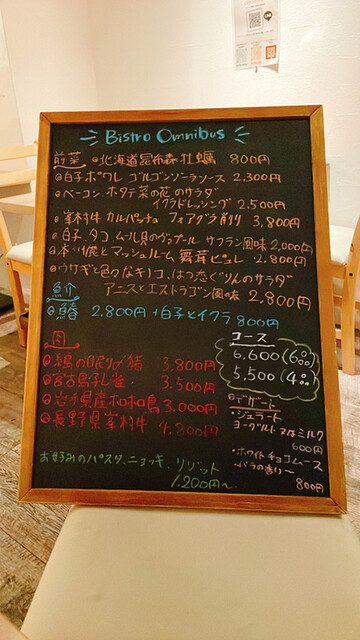 Bistro Omnibus
前菜 ◎北海道昆布森牡蠣 800円
◎白子ポワレ ゴルゴンゾーラソース 2,300円
◎ベーコン ホタテ 菜の花のサラダ
イクラドレッシング 2,500円
◎峯村牛 カルパッチョ フォアグラ削り 3,800円
◎白子、タコ ムール貝の サフラン風味 2,000円
◎本州鹿とマッシュルーム 舞茸ピュレ 2,800円
◎ウサギと色々なキノコ、はつ恋ぐりんのサラダ
アニスとエストラゴン風味 2,800円
魚介
◎鰆 2,800円 +白子とイクラ 800円
肉
◎縄の眠り〆猪 3,800円
◎宮古島孔雀 3,500円
◎岩手県産ホロホロ鳥 3,000円
◎長野県峯村牛 4,800円
コース
6,600(6
5,500(4
◎デザート
・ジェラート
ヨーグルト or ミルク
600円
・ホワイトチョコムース
〜バラの香り〜
800円
お好みのパスタ、ニョッキ、リゾット
1,200円〜